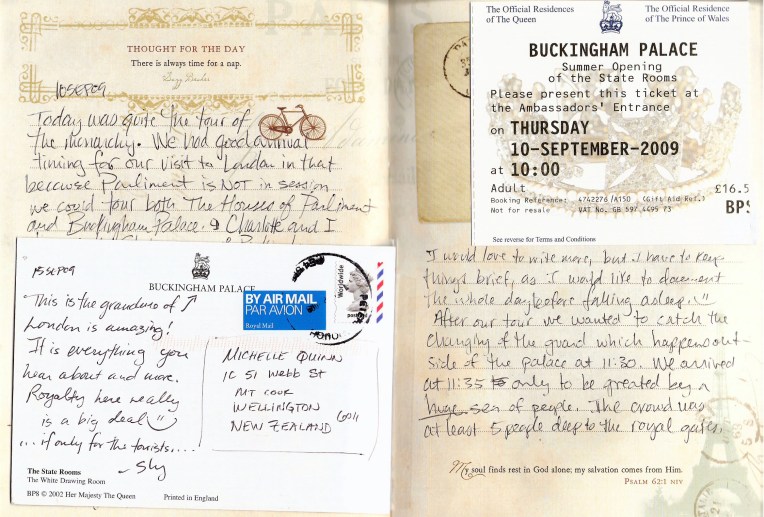 THOUGHT FOR THE DAY
There is always time for a nap.
10SEP09
Today was quite the tour of
the monarchy. We had good annual
timing for our visit to London in that
because Parliment is NOT in session
we could tour both The Houses of Parliment
and Buckingham Palace. Charlotte and I
15SEP09
BUCKINGHAM PALACE
This is the grandma of
London is amazing!
It is everything you
hear about and more.
Royalty here really
is a big deal
...if only for the tourists....
- Shy
BY AIR MAIL
PAR AVION
Royal Mail
Worldwide
MICHELLE QUINN
1C 51 Webb St
MT COOK
WELLINGTON
NEW ZEALAND 6011
The State Rooms
The White Drawing Room
BP8 © 2002 Her Majesty The Queen Printed in England
The Official Residences
of The Queen
The Official Residence
of The Prince of Wales
BUCKINGHAM PALACE
Summer Opening
of the State Rooms
Please present this ticket at
the Ambassadors' Entrance
on THURSDAY
10-SEPTEMBER-2009
at 10:00
Adult £16.5
Booking Reference: 4742276/A15D (Gift Aid Ref.)
Not for resale VAT No. GB 597 4495 73
BPS
See reverse for Terms and Conditions
I would love to write more, but I have to keep
things brief, as I would like to document
the whole day before falling asleep.
After our tour we wanted to catch the
changing of the guard which happens out-
side of the palace at 11:30. We arrived
at 11:35 only to be greated by a
huge sea of people. The crowd was
at least 5 people deep to the royal gates.
My soul finds rest in God alone; my salvation comes from Him.
PSALM 62:1 NIV